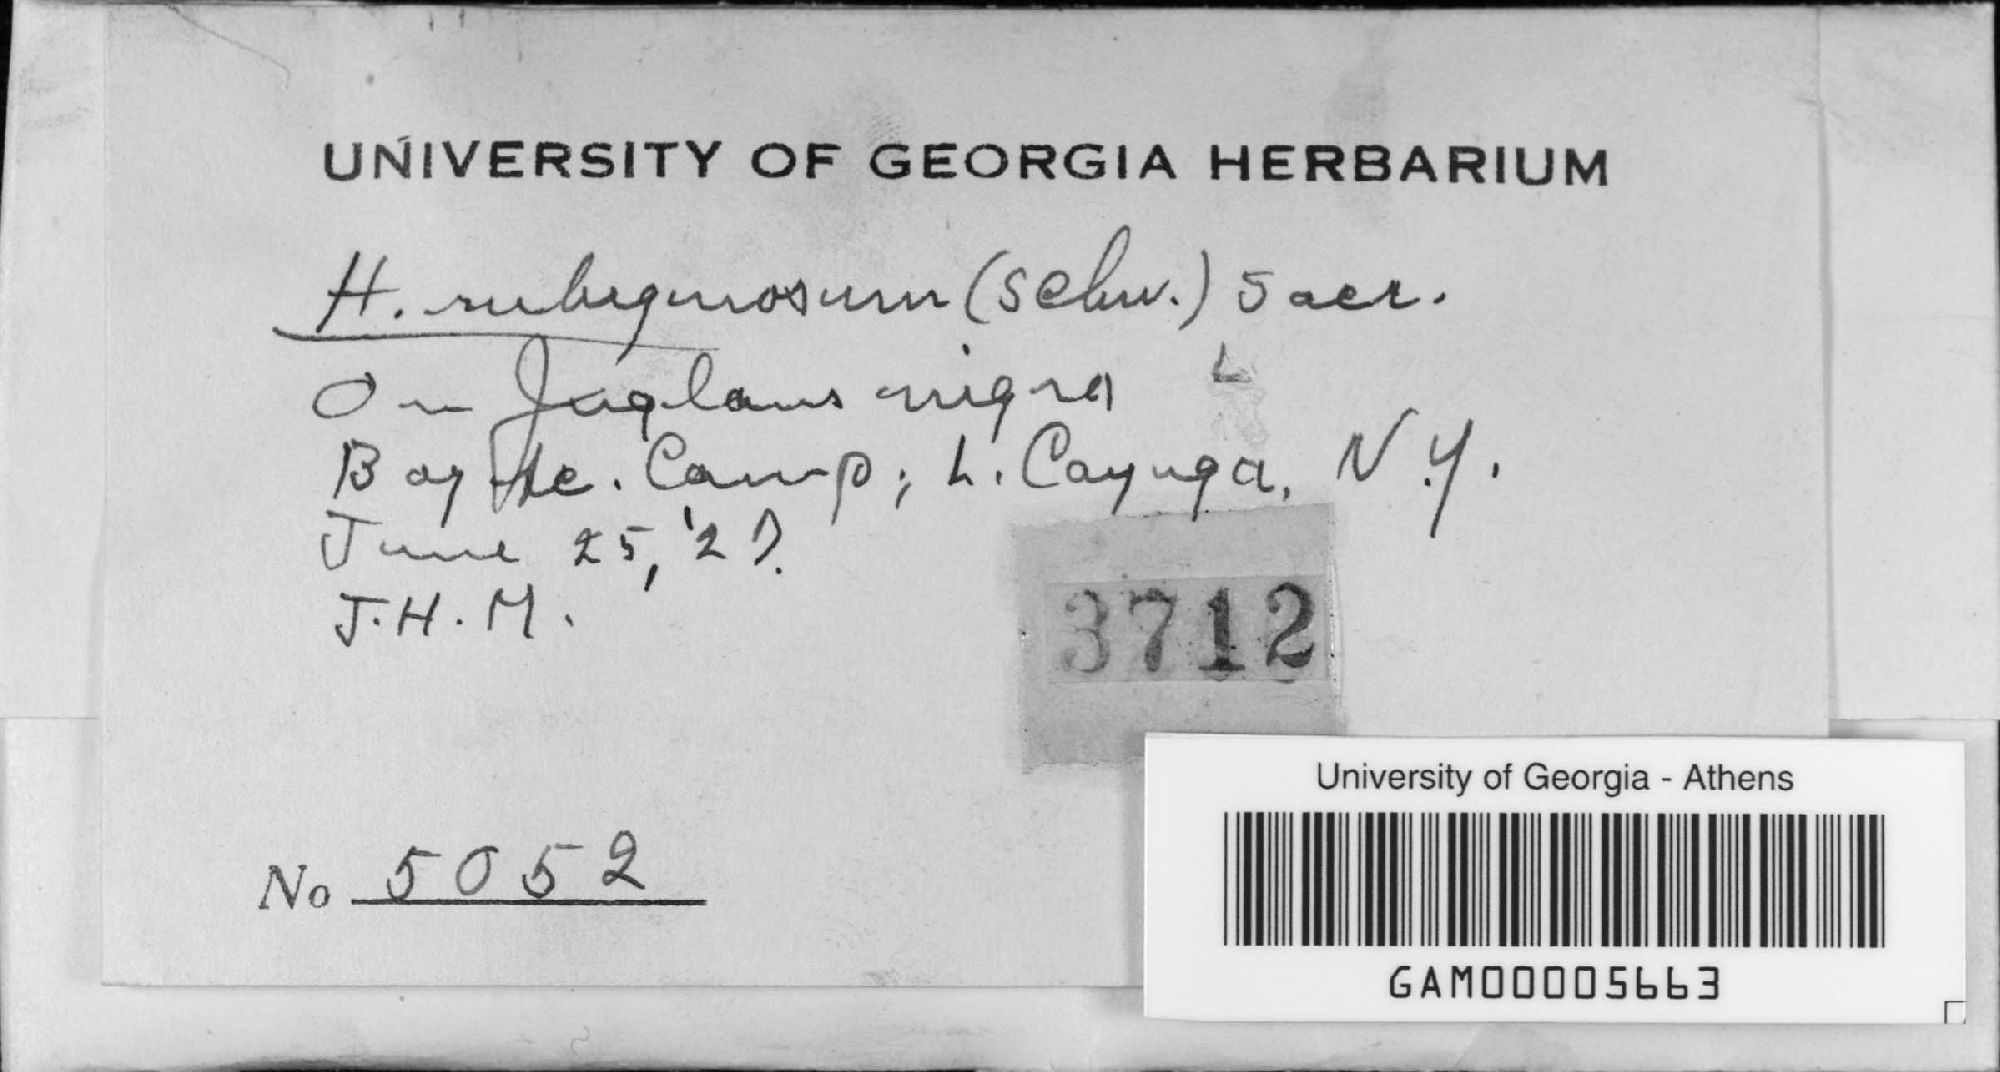 UNIVERSITY OF GEORGIA HERBARIUM
H. rubiginosum (Schw.) Sacc.
On Juglans nigra
Camp; L. Cayuga, N.Y.
June 25, '27.
J.H.M.
3712
No 5052
University of Georgia - Athens
GAM00005663